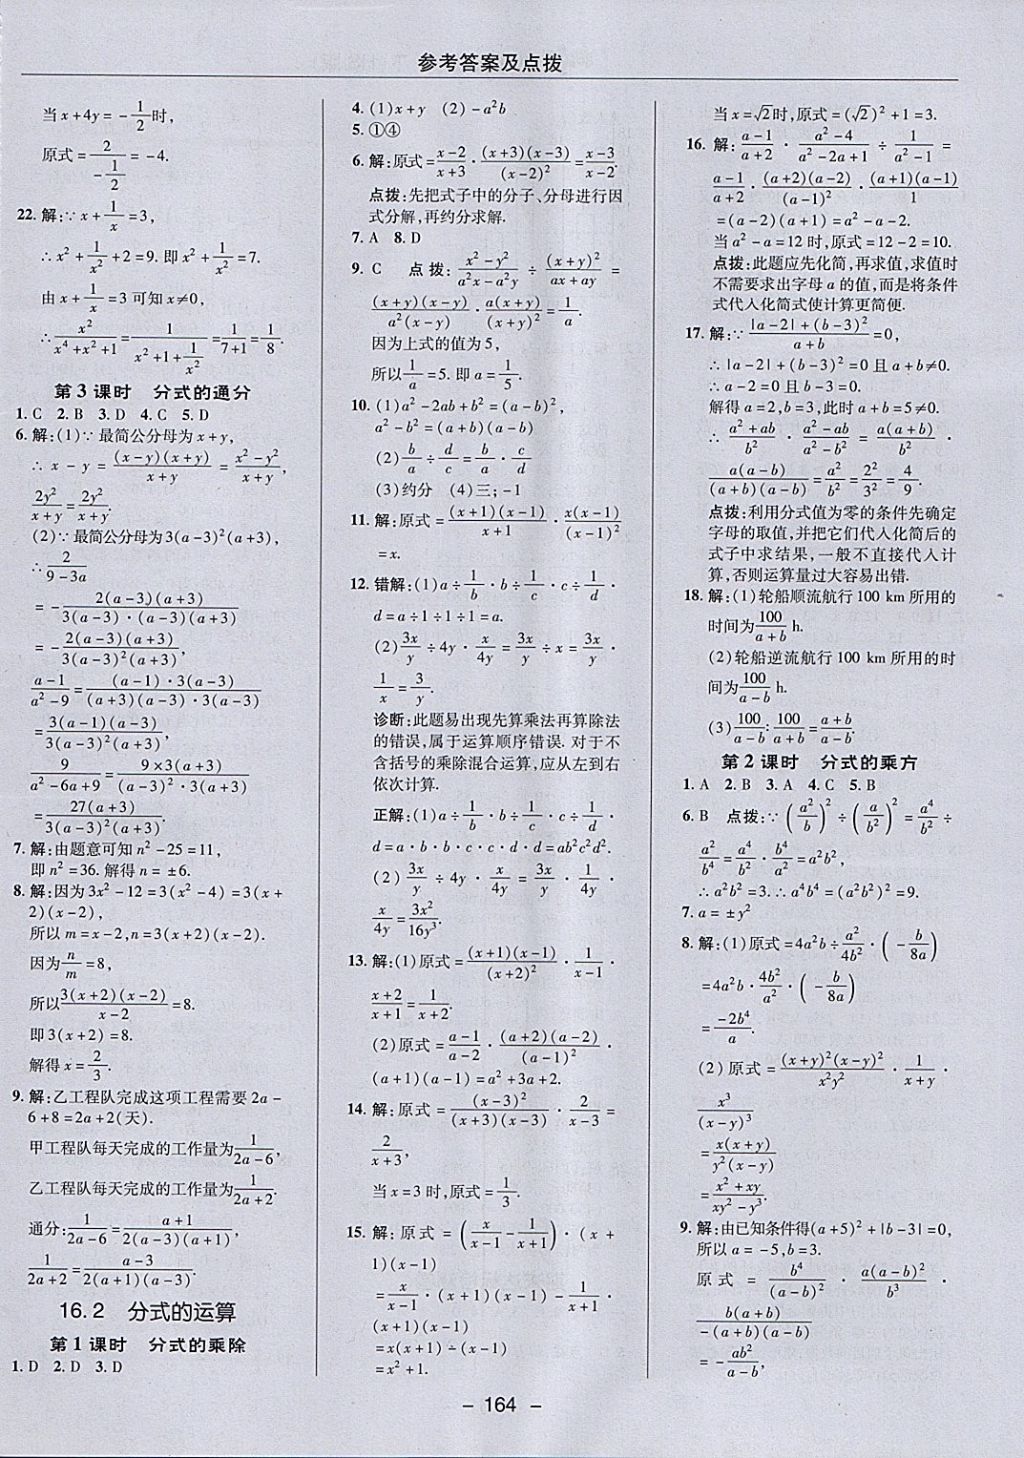 参考答案及点拨
当x+4y=-1/2时,
原式=2/(-1/2)=-4.
22.解:∵x+1/x=3,
∴x²+1/x²+2=9.即x²+1/x²=7.
由x+1/x=3可知x≠0,
∴x²/(x⁴+x²+1)=1/(x²+1+1/x²)=1/(7+1)=1/8.
第3课时 分式的通分
1.C 2.B 3.D 4.C 5.D
6.解:(1)∵最简公分母为x+y,
∴x-y=(x-y)(x+y)/(x+y)=(x²-y²)/(x+y),
2y²/(x+y)=2y²/(x+y).
(2)∵最简公分母为3(a-3)²(a+3),
∴2/(9-3a)
=-2(a-3)(a+3)/[3(a-3)·(a-3)(a+3)]
=-2(a-3)(a+3)/[3(a-3)²(a+3)],
(a-1)/(a²-9)=(a-1)·3(a-3)/[(a+3)(a-3)·3(a-3)]
=3(a-1)(a-3)/[3(a-3)²(a+3)],
9/(a²-6a+9)=9×3(a+3)/[(a-3)²·3(a+3)]
=27(a+3)/[3(a-3)²(a+3)].
7.解:由题意可知n²-25=11,
即n²=36.解得n=±6.
8.解:因为3x²-12=3(x²-4)=3(x+
2)(x-2),
所以m=x-2,n=3(x+2)(x-2).
因为n/m=8,
所以3(x+2)(x-2)/(x-2)=8.
即3(x+2)=8.
解得x=2/3.
9.解:乙工程队完成这项工程需要2a-
6+8=2a+2(天).
甲工程队每天完成的工作量为1/(2a-6),
乙工程队每天完成的工作量为1/(2a+2).
通分:1/(2a-6)=(a+1)/[2(a-3)(a+1)],
1/(2a+2)=(a-3)/[2(a+1)(a-3)].
16.2 分式的运算
第1课时 分式的乘除
1.D 2.D 3.D
4.(1)x+y (2)-a²b
5.①④
6.解:原式=(x-2)/(x+3)·(x+3)(x-3)/(x-2)²=(x-3)/(x-2).
点拨:先把式子中的分子、分母进行因
式分解,再约分求解.
7.A 8.D
9.C 点拨:(x²-y²)/(a²x-a²y)÷(x+y)²/(ax+ay)=
(x+y)(x-y)/[a²(x-y)]·a(x+y)/(x+y)²=1/a.
因为上式的值为5,
所以1/a=5.即a=1/5.
10.(1)a²-2ab+b²=(a-b)²,
a²-b²=(a+b)(a-b)
(2)b/a÷d/c=b/a·c/d
(3)约分 (4)三;-1
11.解:原式=(x+1)(x-1)/(x+1)·x(x-1)/(x-1)²
=x.
12.错解:(1)a÷1/b·b÷1/c·c÷1/d·
d=a÷1÷1÷1=a.
(2)3x/y÷4y·x/4y=3x/y÷x=3x/y·
1/x=3/y.
诊断:此题易出现先算乘法再算除法
的错误,属于运算顺序错误.对于不
含括号的乘除混合运算,应从左到右
依次计算.
正解:(1)a÷1/b·b÷1/c·c÷1/d·
d=a·b·b·c·c·d·d=ab²c²d².
(2)3x/y÷4y·x/4y=3x/y·1/4y·
x/4y=3x²/16y³.
13.解:(1)原式=(x+1)(x-1)/(x+2)²·1/(x-1)·
(x+2)/(x+1)=1/(x+2).
(2)原式=(a-1)/(a-2)·(a+2)(a-2)/(a-1)²·
(a+1)(a-1)=a²+3a+2.
14.解:原式=(x-3)²/[(x+3)(x-3)]·2/(x-3)=
2/(x+3),
当x=3时,原式=1/3.
15.解:原式=(x/(x-1)·1/(x+1))·(x+
1)(x-1)
=x/(x-1)·(x+1)(x-1)·
(x+1)(x-1)
=x(x+1)·(x+1)(x-1)
=x²+1.
当x=√2时,原式=(√2)²+1=3.
16.解:(a-1)/(a+2)·(a²-4)/(a²-2a+1)÷1/(a²-1)=
(a-1)/(a+2)·(a+2)(a-2)/(a-1)²·(a+1)(a-1)/1
=(a-2)(a+1)=a²-a-2.
当a²-a=12时,原式=12-2=10.
点拨:此题应先化简,再求值,求值时
不需要求出字母a的值,而是将条件
式代入化简式使计算更简便.
17.解:∵[|a-2|+(b-3)²]/(a+b)=0,
∴|a-2|+(b-3)²=0且a+b≠0.
∴a-2=0且b-3=0.
解得a=2,b=3,此时a+b=5≠0.
∴(a²+ab)/b²·(a²-ab)/(a²-b²)=a(a+b)/b²·
a(a-b)/[(a+b)(a-b)]=a²/b²=2²/3²=4/9.
点拨:利用分式值为零的条件先确定
字母的取值,并把它们代入化简后的
式子中求结果,一般不直接代入计
算,否则运算量过大容易出错.
18.解:(1)轮船顺流航行100 km所用的
时间为100/(a+b) h.
(2)轮船逆流航行100 km所用的时
间为100/(a-b) h.
(3)100/(a-b):100/(a+b)=(a+b)/(a-b).
第2课时 分式的乘方
1.A 2.B 3.A 4.C 5.B
6.B 点拨:∵(a²/b)²÷(a/b²)²=a⁴/b²÷
a²/b⁴=a⁴/b²·b⁴/a²=a²b²,
∴a²b²=3.∴a⁴b⁴=(a²b²)²=9.
7.a=±y²
8.解:(1)原式=4a²b÷a²/4b²·(-b/8a)
=4a²b·4b²/a²·(-b/8a)
=-2b⁴/a.
(2)原式=(x+y)²(x-y)²/x²y²·1/(x+y)·
x³/(x-y)³
=x(x+y)/[y²(x-y)]
=(x²+xy)/(xy²-y³).
9.解:由已知条件得(a+5)²+|b-3|=0,
所以a=-5,b=3.
原式=b⁴/(a-b)²·a(a-b)²/b³·
b(a+b)/[-(a+b)(a-b)]
=-ab²/(a-b).
- 164 -